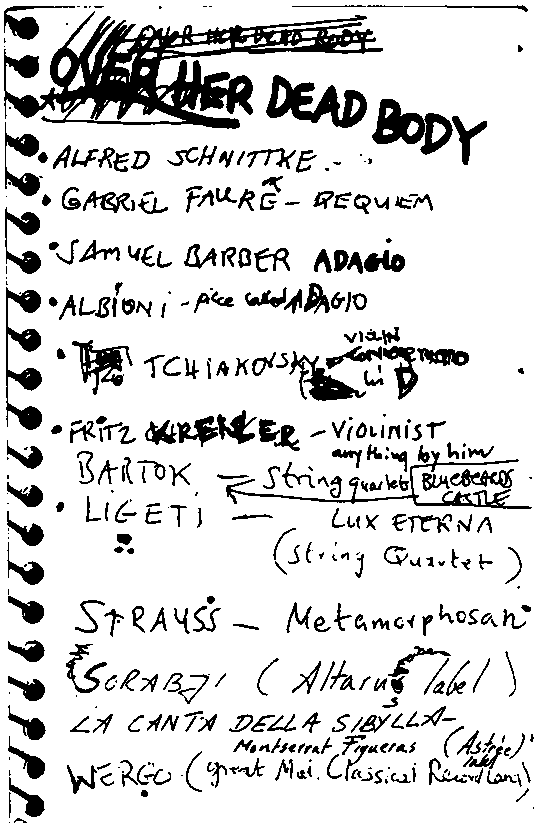 OVER HER DEAD BODY
OVER HER DEAD BODY
• ALFRED SCHNITTKE -
• GABRIEL FAURÉ - REQUIEM
• SAMUEL BARBER ADAGIO
• ALBIONI - piece called ADAGIO
• TCHIAKOVSKY - VIOLIN
CONCERTO
in D
• FRITZ KREALER - VIOLINIST
anything by him
BARTOK - String quartets BLUEBEARDS
CASTLE
• LIGETI - LUX ETERNA
(String Quartet)
STRAUSS - Metamorphosan
SORABJI (Altarus label)
LA CANTA DELLA SIBYLLA -
Montserrat Figueras (Astrée)
label
WERGO (great Classical Record)